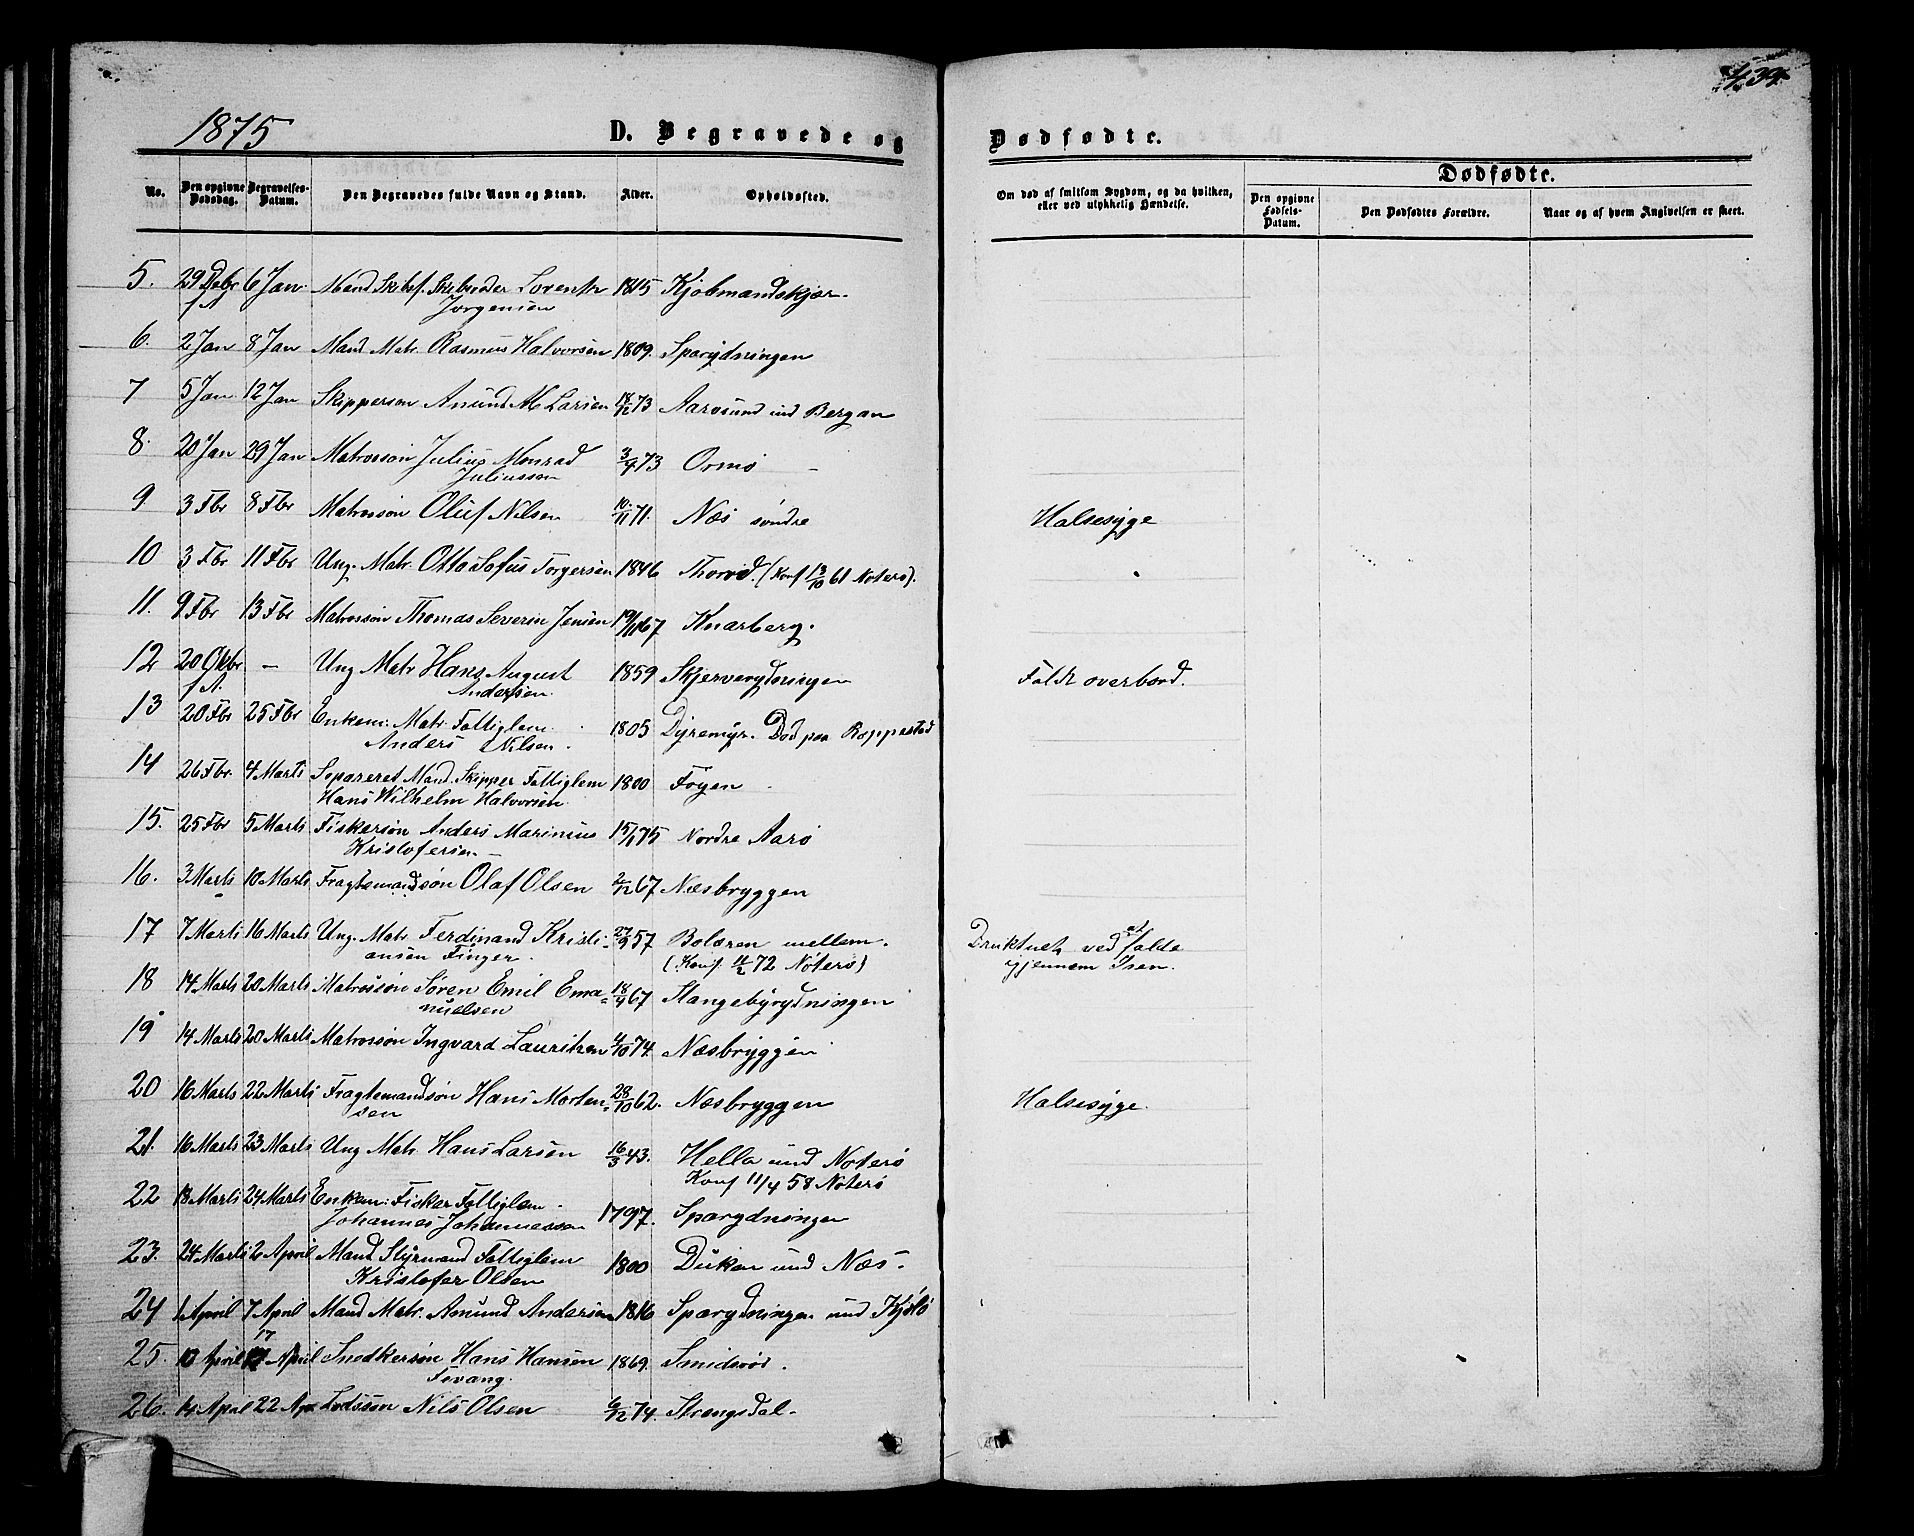 1875
D. Begravede og Dødfødte.
439
No. Den opgivne Dødsdag. Begravelses-Datum. Den Begravedes fulde Navn og Stand. Alder. Opholdssted. Om død af smitsom Sygdom, og da hvilken, eller ved ulykkelig Hændelse. Dødfødte.
Den opgivne Fødsels-Datum. Den Dødfødtes Forældre. Naar og af hvem Angivelsen er skeet.
5. 29 Debr 6 Jan Mand Skibsreder Lorentz 1815 Kjøbmandskjær.
f A Jørgensen
6. 2 Jan 8 Jan Mand Matr. Rasmus Halvorsen 1809. Sparydningen
7 5 Jan 12 Jan Skippersøn Anund M Larsen 18/12 73 Aarøsund und Bergan
8. 20 Jan 29 Jan Matrossøn Julius Monrad 3/9 73 Ormø
Juliussen
9 3 Fbr 8 Fbr Matrossøn Oluf Nilsen 10/11 71. Næs søndre Halsesyge
10 3 Fbr 11 Fbr Ung. Matr. Otto Sofus Torgersen 1846 Thorød. (Konf 13/10 61 Nøterø).
11. 9 Fbr 13 Fbr Matrossøn Thomas Severin Jensen 19/11 67 Knarberg.
12 20 Oktbr — Ung Matr Hans August 1859 Skjerverydningen Faldt overbord.
f A. Andersen.
13 20 Fbr 25 Fbr Enkem: Matr. Fattiglem 1805 Dyremyr. Død paa Roppestad
Anders Nilsen.
14 26 Fbr. 4 Marts Separeret Mand. Skipper Fattiglem 1800 Føyen
Hans Wilhelm Halvorsen
15. 25 Fbr 5 Marts Fiskersøn Anders Marinius 15/1 75 Nordre Aarø
Kristofersen
16. 3 Marts 10 Marts Fragtemandsøn Olaf Olsen 2/12 67 Næsbryggen
17 7 Marts 16 Marts Ung. Matr. Ferdinand Kristi- 27/9 57 Bolæren mellem. Druknet ved at falde
ansen Finger. (Konf. 11/2 72 Nøterø) igjennem Isen.
18 14 Marts 20 Marts Matrossøn Søren Emil Ema= 18/4 67 Stangebyrydningen
nuelsen
19 14 Marts 20 Marts Matrossøn Ingvard Lauritzen 4/10 74. Næsbryggen
20 16 Marts 22 Marts Fragtemandsøn Hans Morten= 28/10 62. Næsbryggen Halsesyge.
sen
21. 16 Marts 23 Marts Ung Matr. Hans Larsen 16/3 43. Hella und Nøterø
Konf 11/4 58 Nøterø
22 18 Marts 24 Marts Enkem: Fisker Fattiglem 1797. Sparydningen
Johannes Johannessen
23. 24 Marts 2 April Mand Styrmand Fattiglem 1800 Duken und Næs.
Kristofer Olsen
24 1 April 7 April Mand Matr. Amund Andersen 1816 Sparydningen und Kjølø
25. 10 April 17 April Snedkersøn Hans Hansen 1869. Smidsrød.
Fevang.
26. 14 April 22 Apr Lodssøn Nils Olsen 6/12 74. Strengsdal.